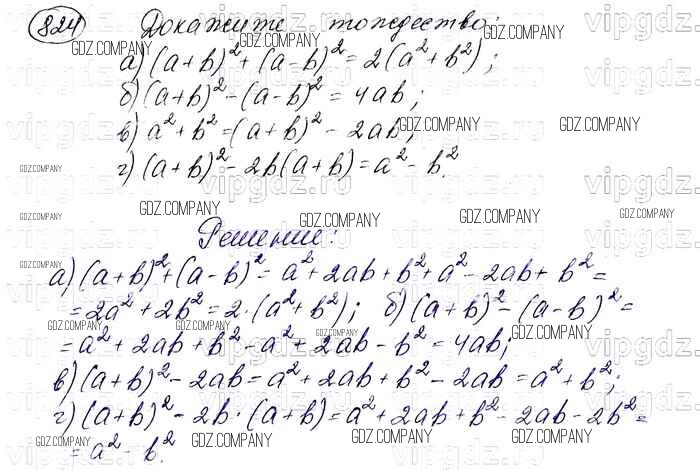 824 Докажите тождество:
а) (a+b)² + (a-b)² = 2(a² + b²);
б) (a+b)² - (a-b)² = 4ab;
в) a² + b² = (a+b)² - 2ab;
г) (a+b)² - 2b(a+b) = a² - b².
Решение:
а) (a+b)² + (a-b)² = a² + 2ab + b² + a² - 2ab + b² =
= 2a² + 2b² = 2·(a² + b²); б) (a+b)² - (a-b)² =
= a² + 2ab + b² - a² + 2ab - b² = 4ab;
в) (a+b)² - 2ab = a² + 2ab + b² - 2ab = a² + b²;
г) (a+b)² - 2b·(a+b) = a² + 2ab + b² - 2ab - 2b² =
= a² - b².
GDZ.COMPANY
vipgdz.ru